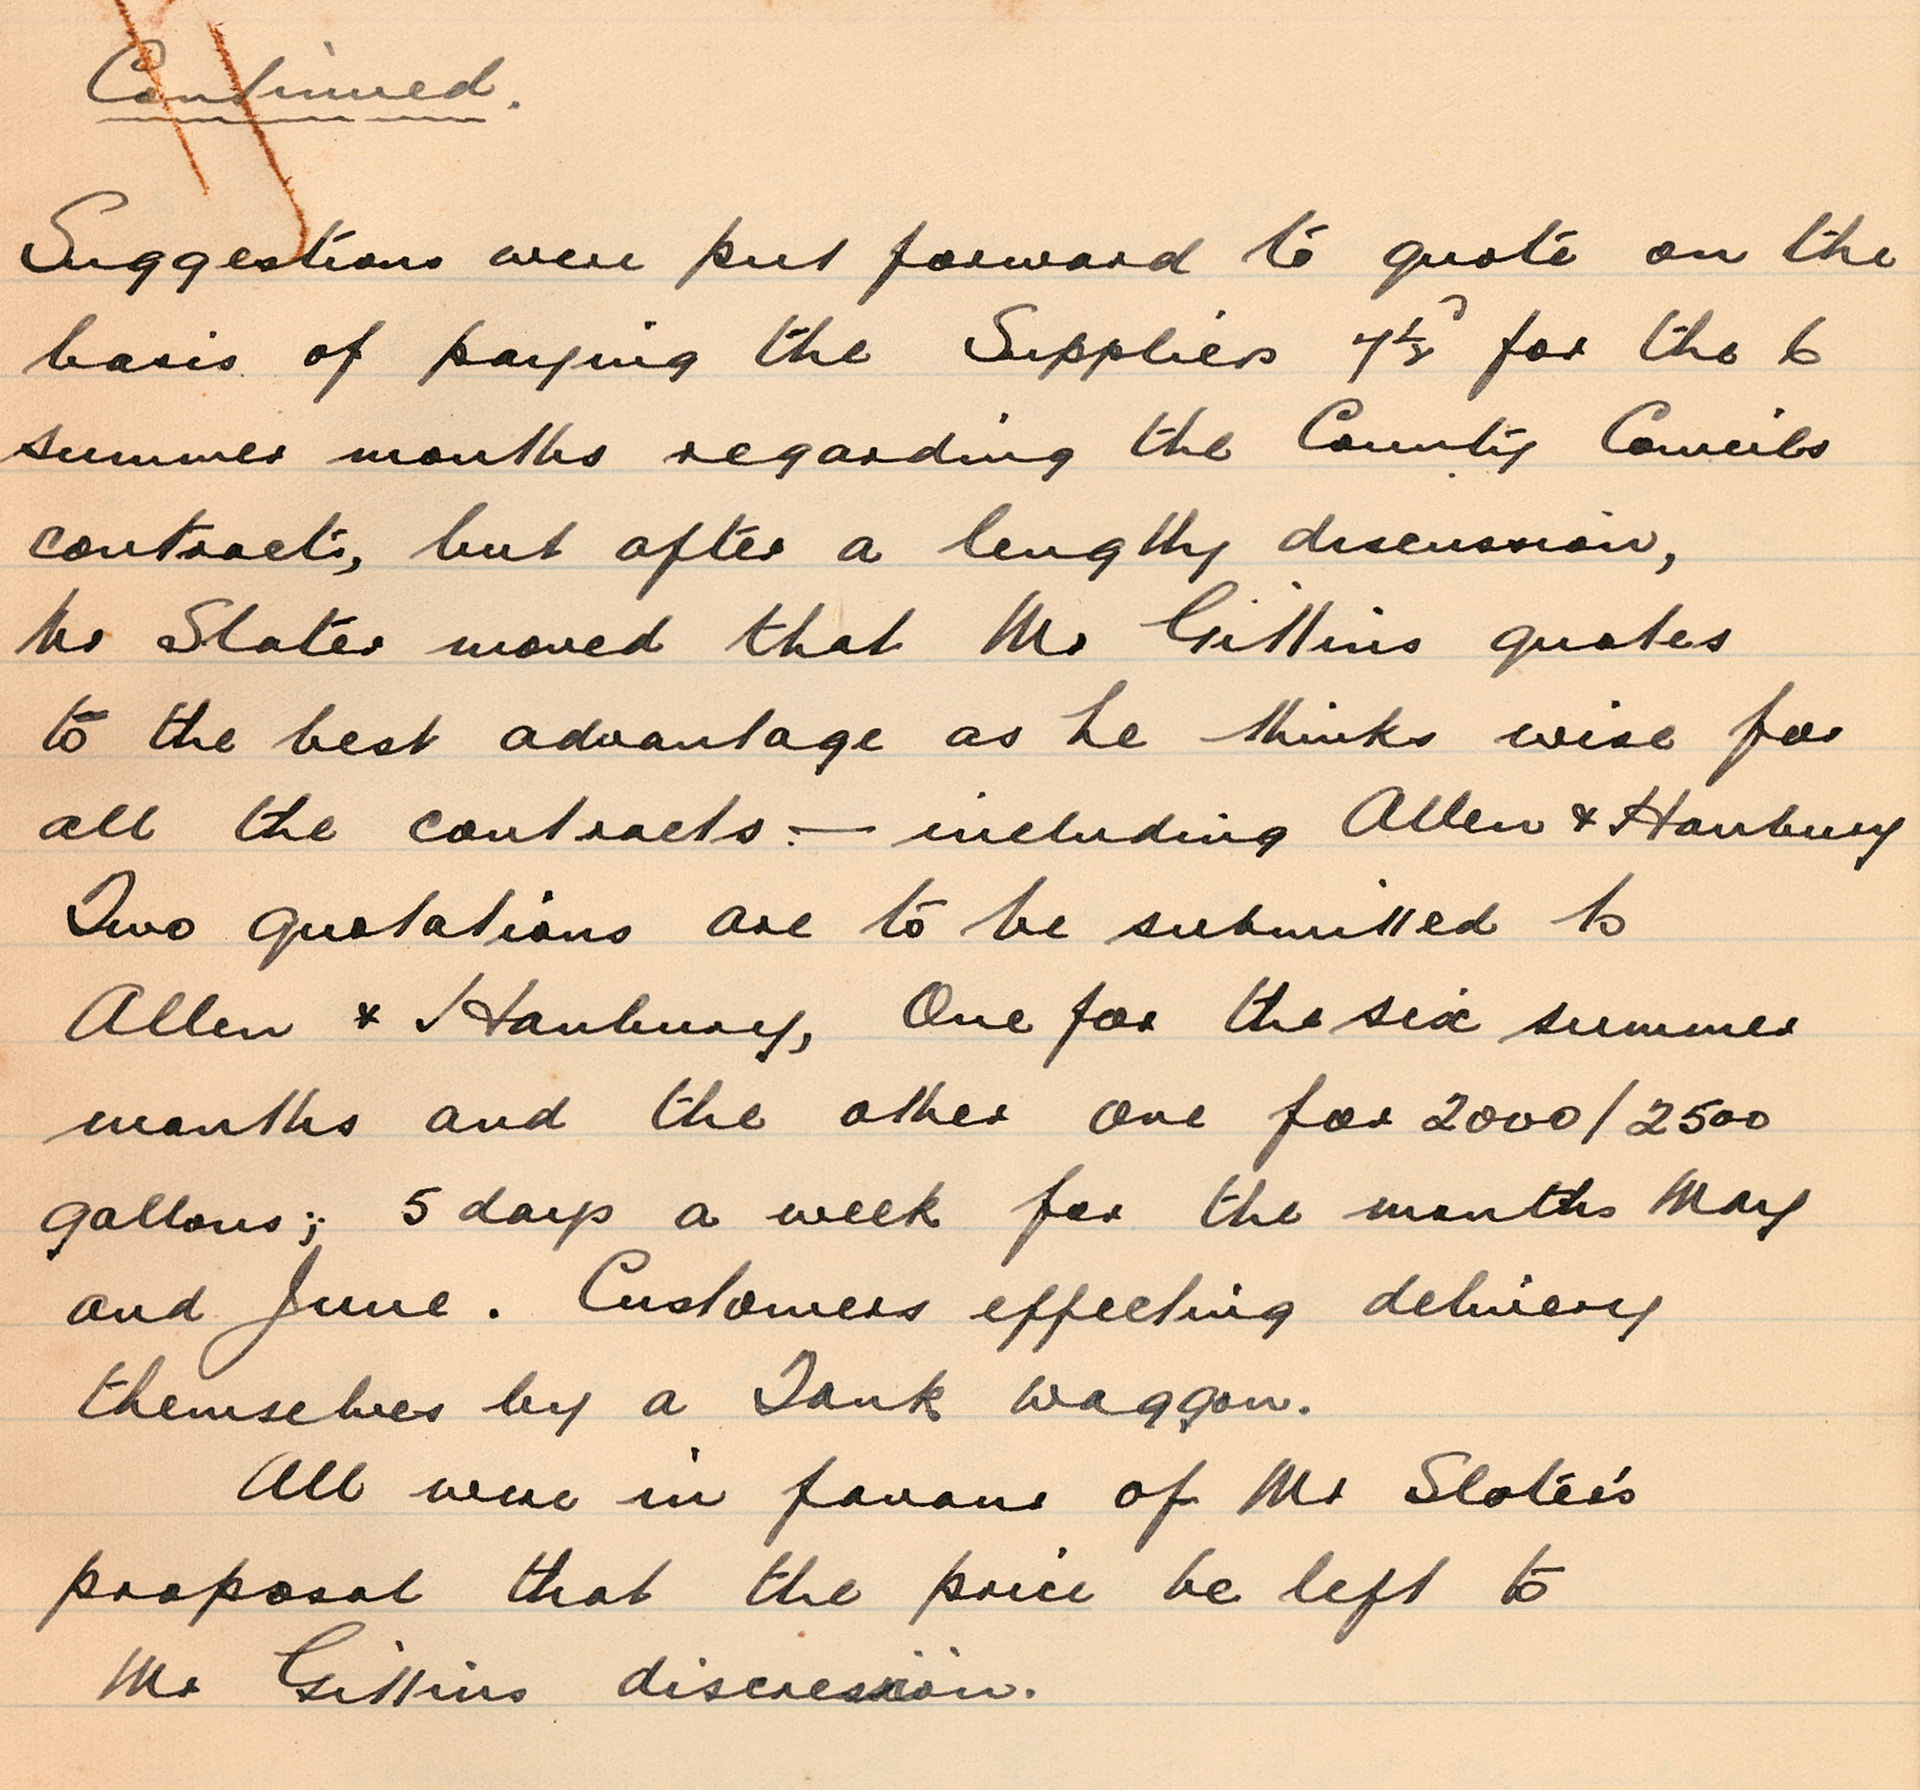 Continued.
Suggestions were put forward to quote on the
basis of paying the Suppliers 7½ᵈ for the 6
summer months regarding the County Councils
contracts, but after a lengthy discussion,
Mr Slater moved that Mr Gittins quotes
to the best advantage as he thinks wise for
all the contracts :— including Allen & Hanbury
Two quotations are to be submitted to
Allen & Hanbury, One for the six summer
months and the other one for 2000/2500
gallons; 5 days a week for the months May
and June. Customers effecting delivery
themselves by a Tank waggon.
All were in favour of Mr Slater's
proposal that the price be left to
Mr Gittins discression.